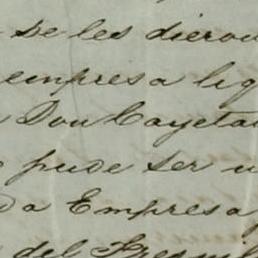 se les dieron
empresa lig
Don Cayeta
pude ser u
da Empresa
del Presi